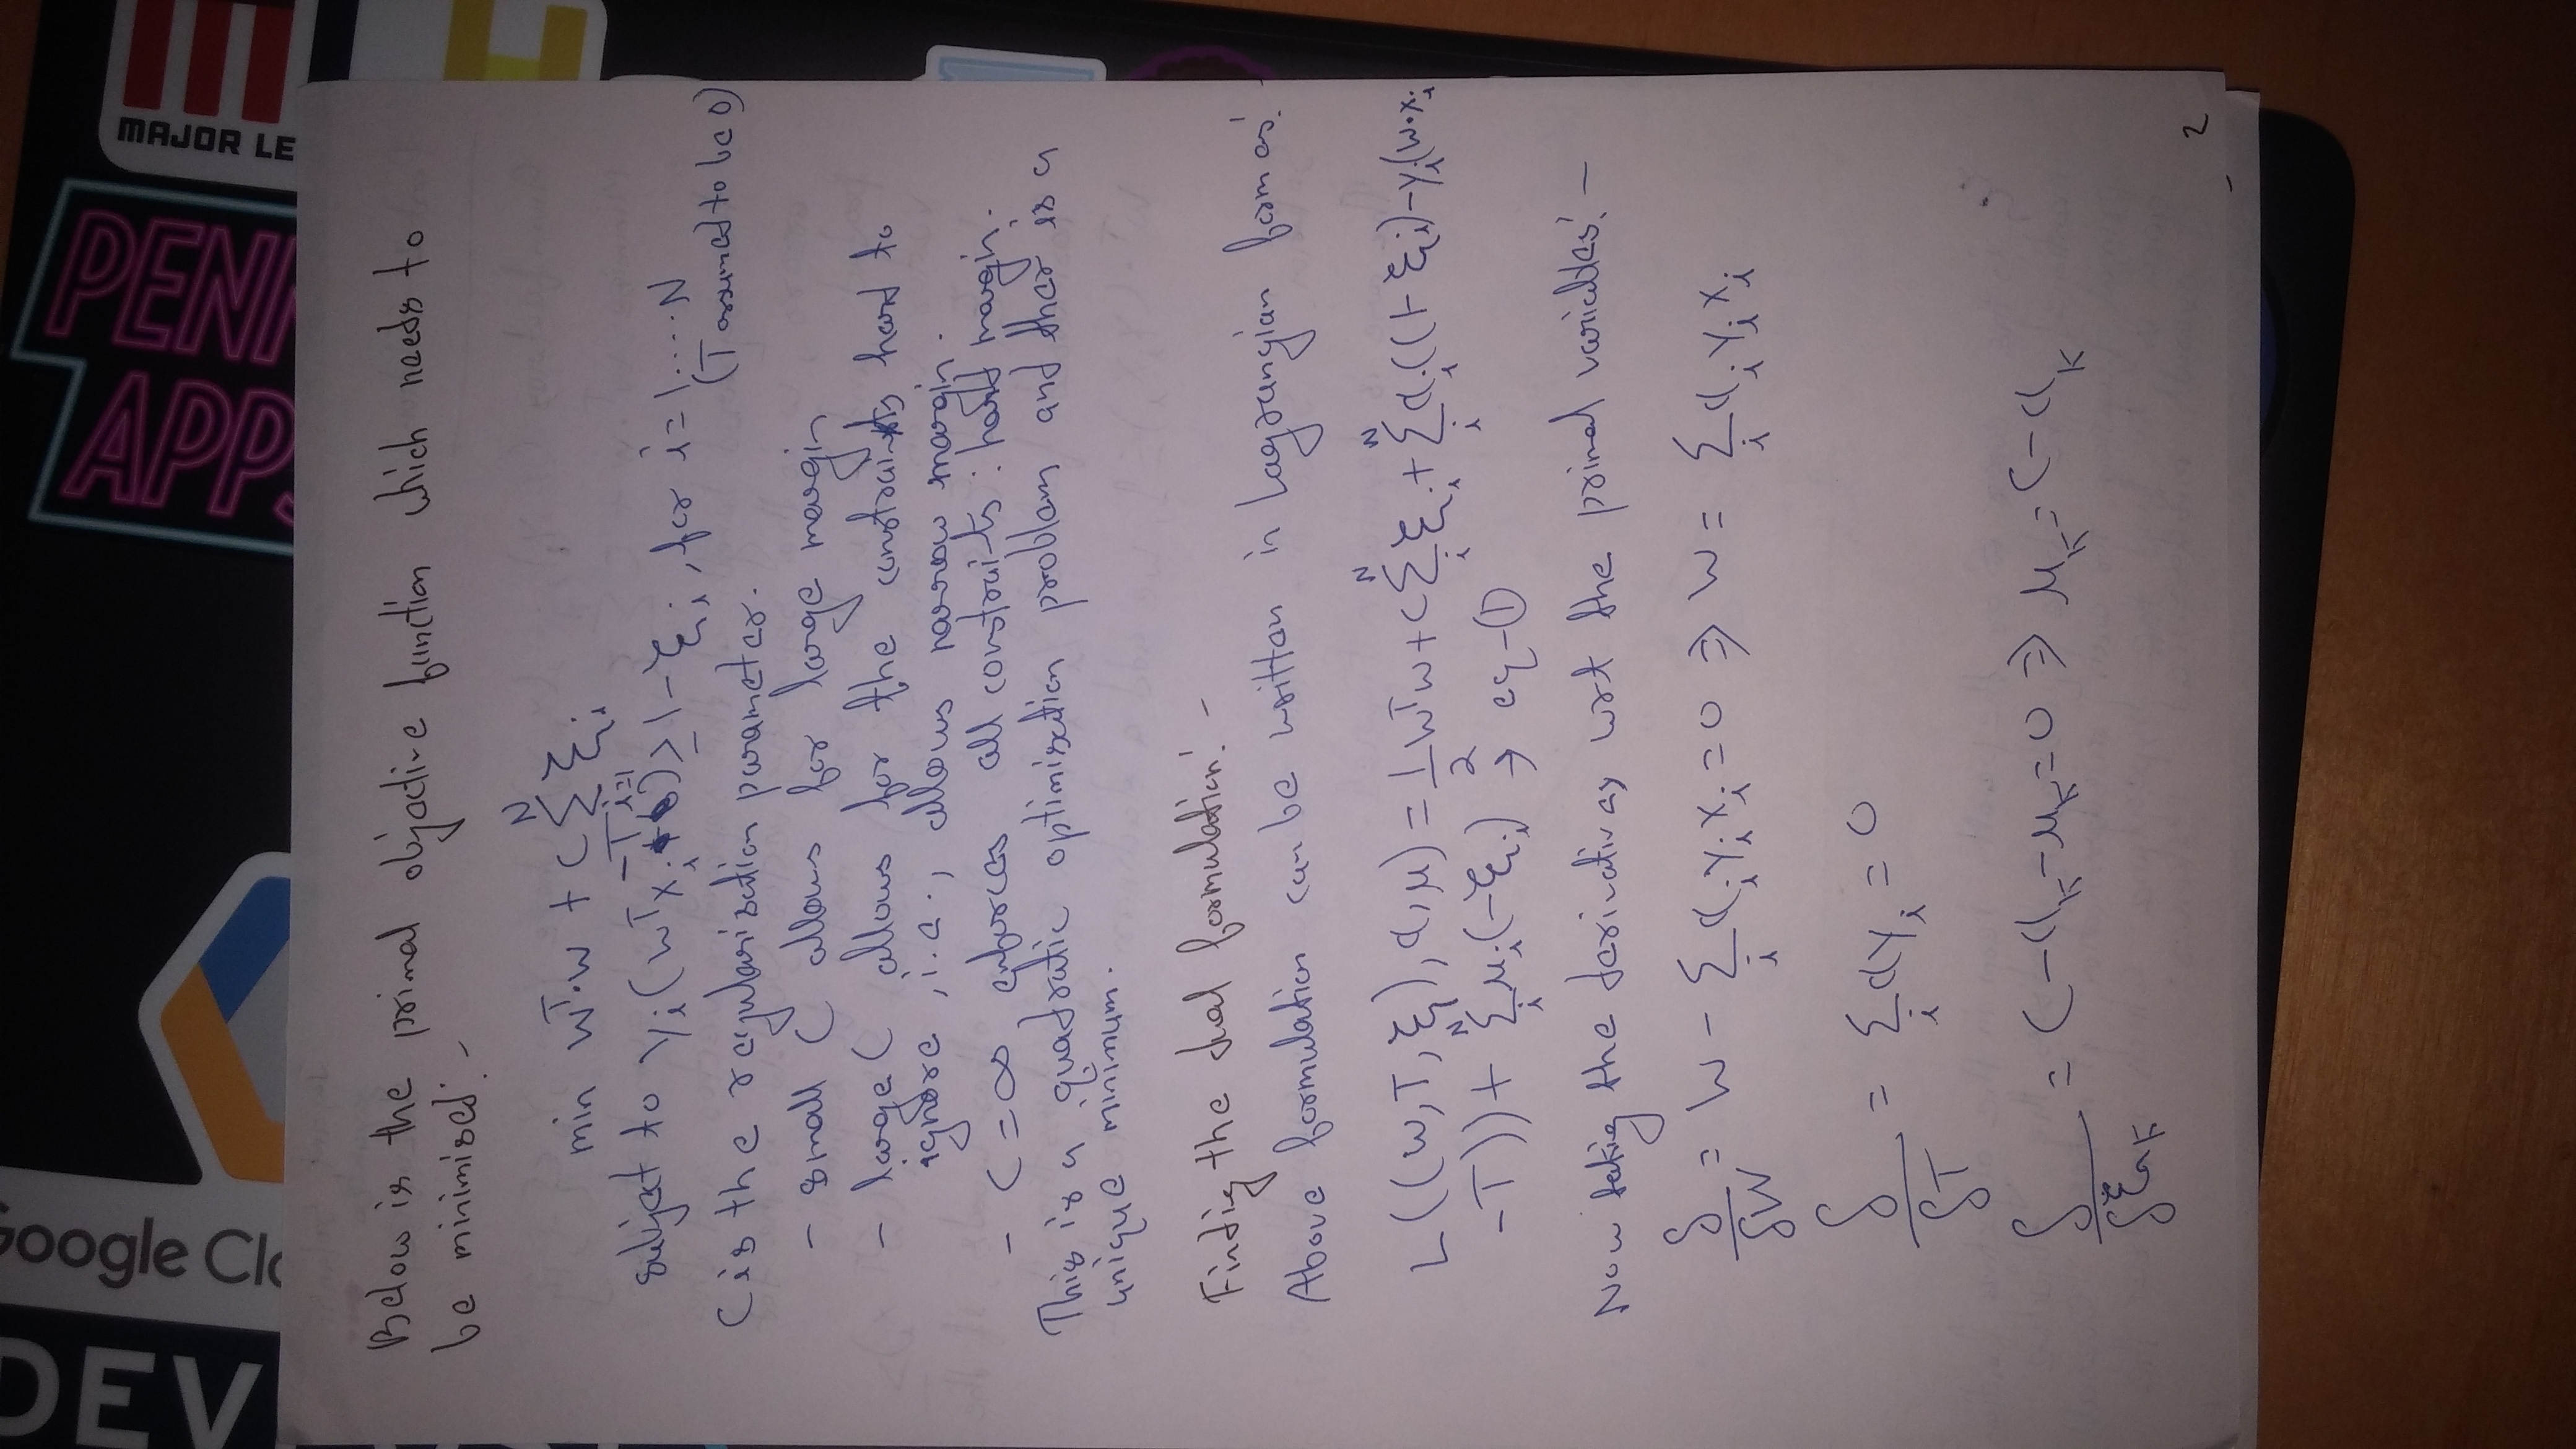 DEV
Google Clo
PENN
APP
MAJOR LE
Below is the primal objective function which needs to
be minimised:-
min Wᵀ·W + C Σᵢ₌₁ᴺ ξᵢ
subject to yᵢ(Wᵀxᵢ - T) ≥ 1 - ξᵢ, for i = 1....N
(T assumed to be 0)
C is the regularisation parameter.
- small C allows for large margin
- large C allows for the constraints hard to
ignore, i.e., allows narrow margin.
- C = ∞ enforces all constraints : hard margin.
This is a quadratic optimisation problem and ther is a
unique minimum.
Finding the dual formulation:-
Above formulation can be written in Lagrangian form as:
L((W, T, ξ), α, μ) = 1/2 WᵀW + C Σᵢᴺ ξᵢ + Σᵢᴺ αᵢ((1 - ξᵢ) - yᵢ(W·xᵢ
- T)) + Σᵢᴺ μᵢ(-ξᵢ) → eq-①
Now taking the derivatives wrt the primal variables:-
δ/δW = W - Σᵢ αᵢyᵢxᵢ = 0 ⇒ W = Σᵢ αᵢyᵢxᵢ
δ/δT = Σᵢ αyᵢ = 0
δ/δξₖ = C - αₖ - μₖ = 0 ⇒ μₖ = C - αₖ
2